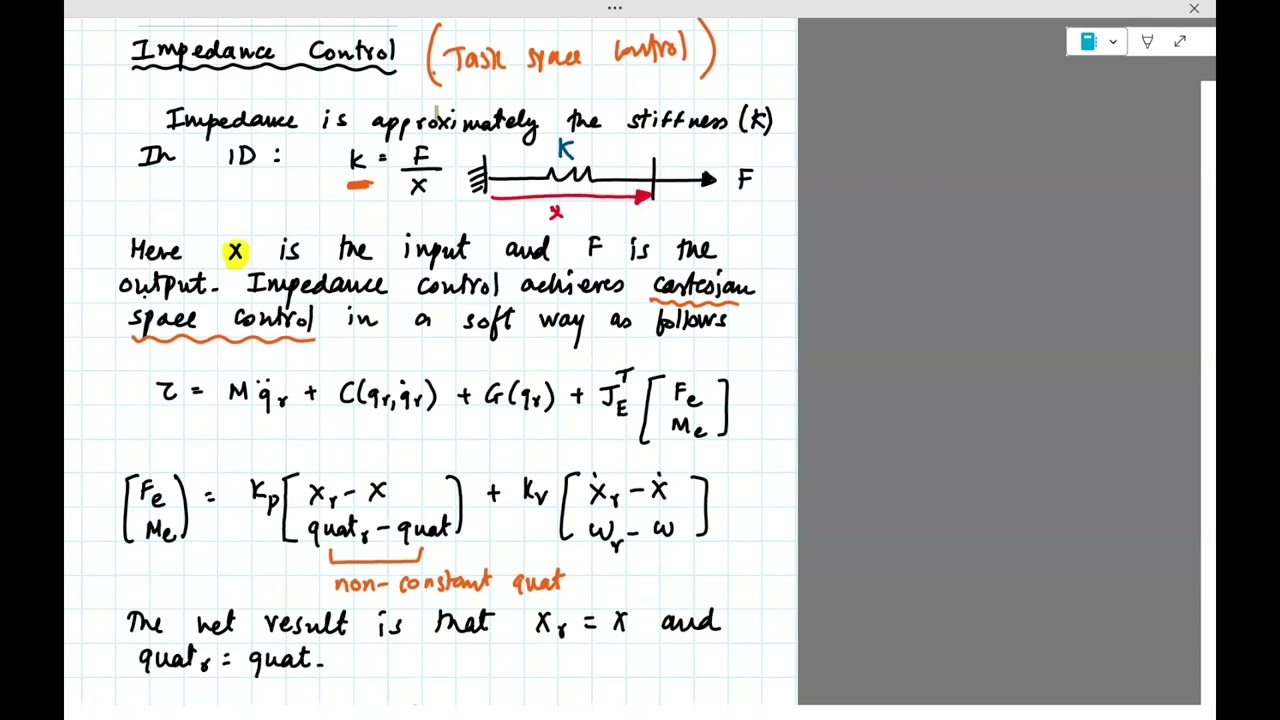 Impedance Control (Task space control)
Impedance is approximately the stiffness (k)
In 1D : k = F/x K F
x
Here x is the input and F is the
output. Impedance control achieves cartesian
space control in a soft way as follows
τ = M q̈r + C(qr, q̇r) + G(qr) + J_E^T [Fe
Me]
[Fe
Me] = Kp [xr - x
quatr - quat] + Kv [ẋr - ẋ
ωr - ω]
non-constant quat
The net result is that xr = x and
quatr = quat.